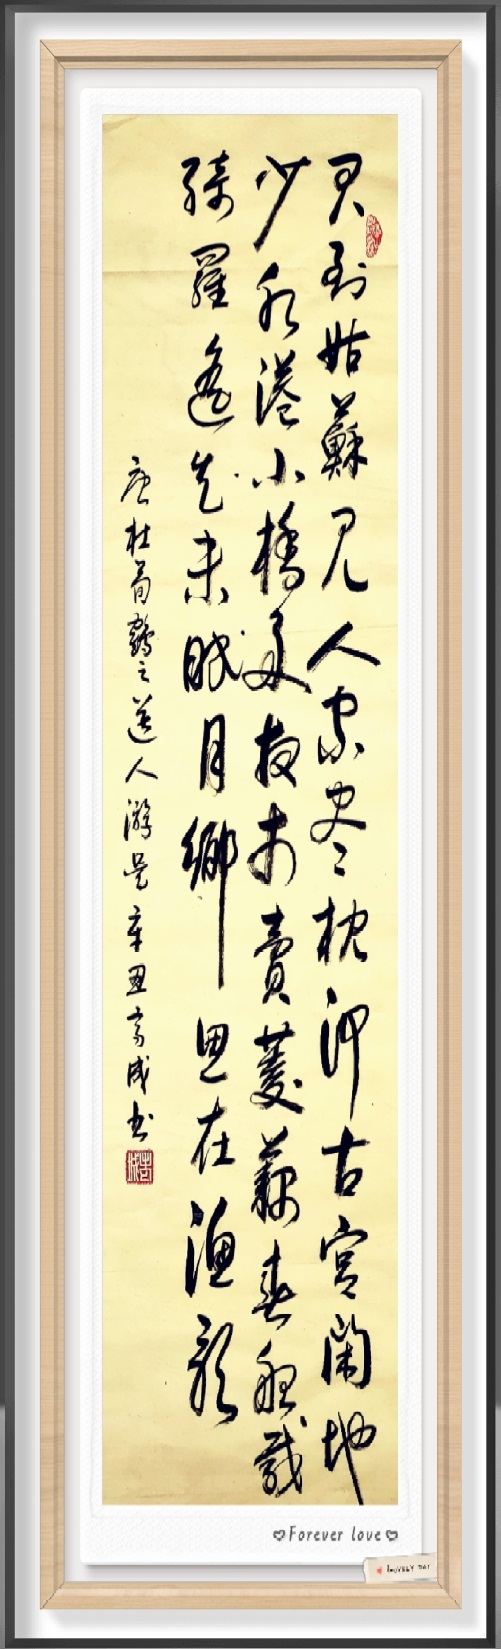 君到姑蘇見人家盡枕河古宮閑地
少水港小橋多夜市賣菱藕春船載
綺羅遙知未眠月鄉思在漁歌
唐杜荀鶴之送人游吳辛丑成书
♡Forever love♡
LOVELY DAY